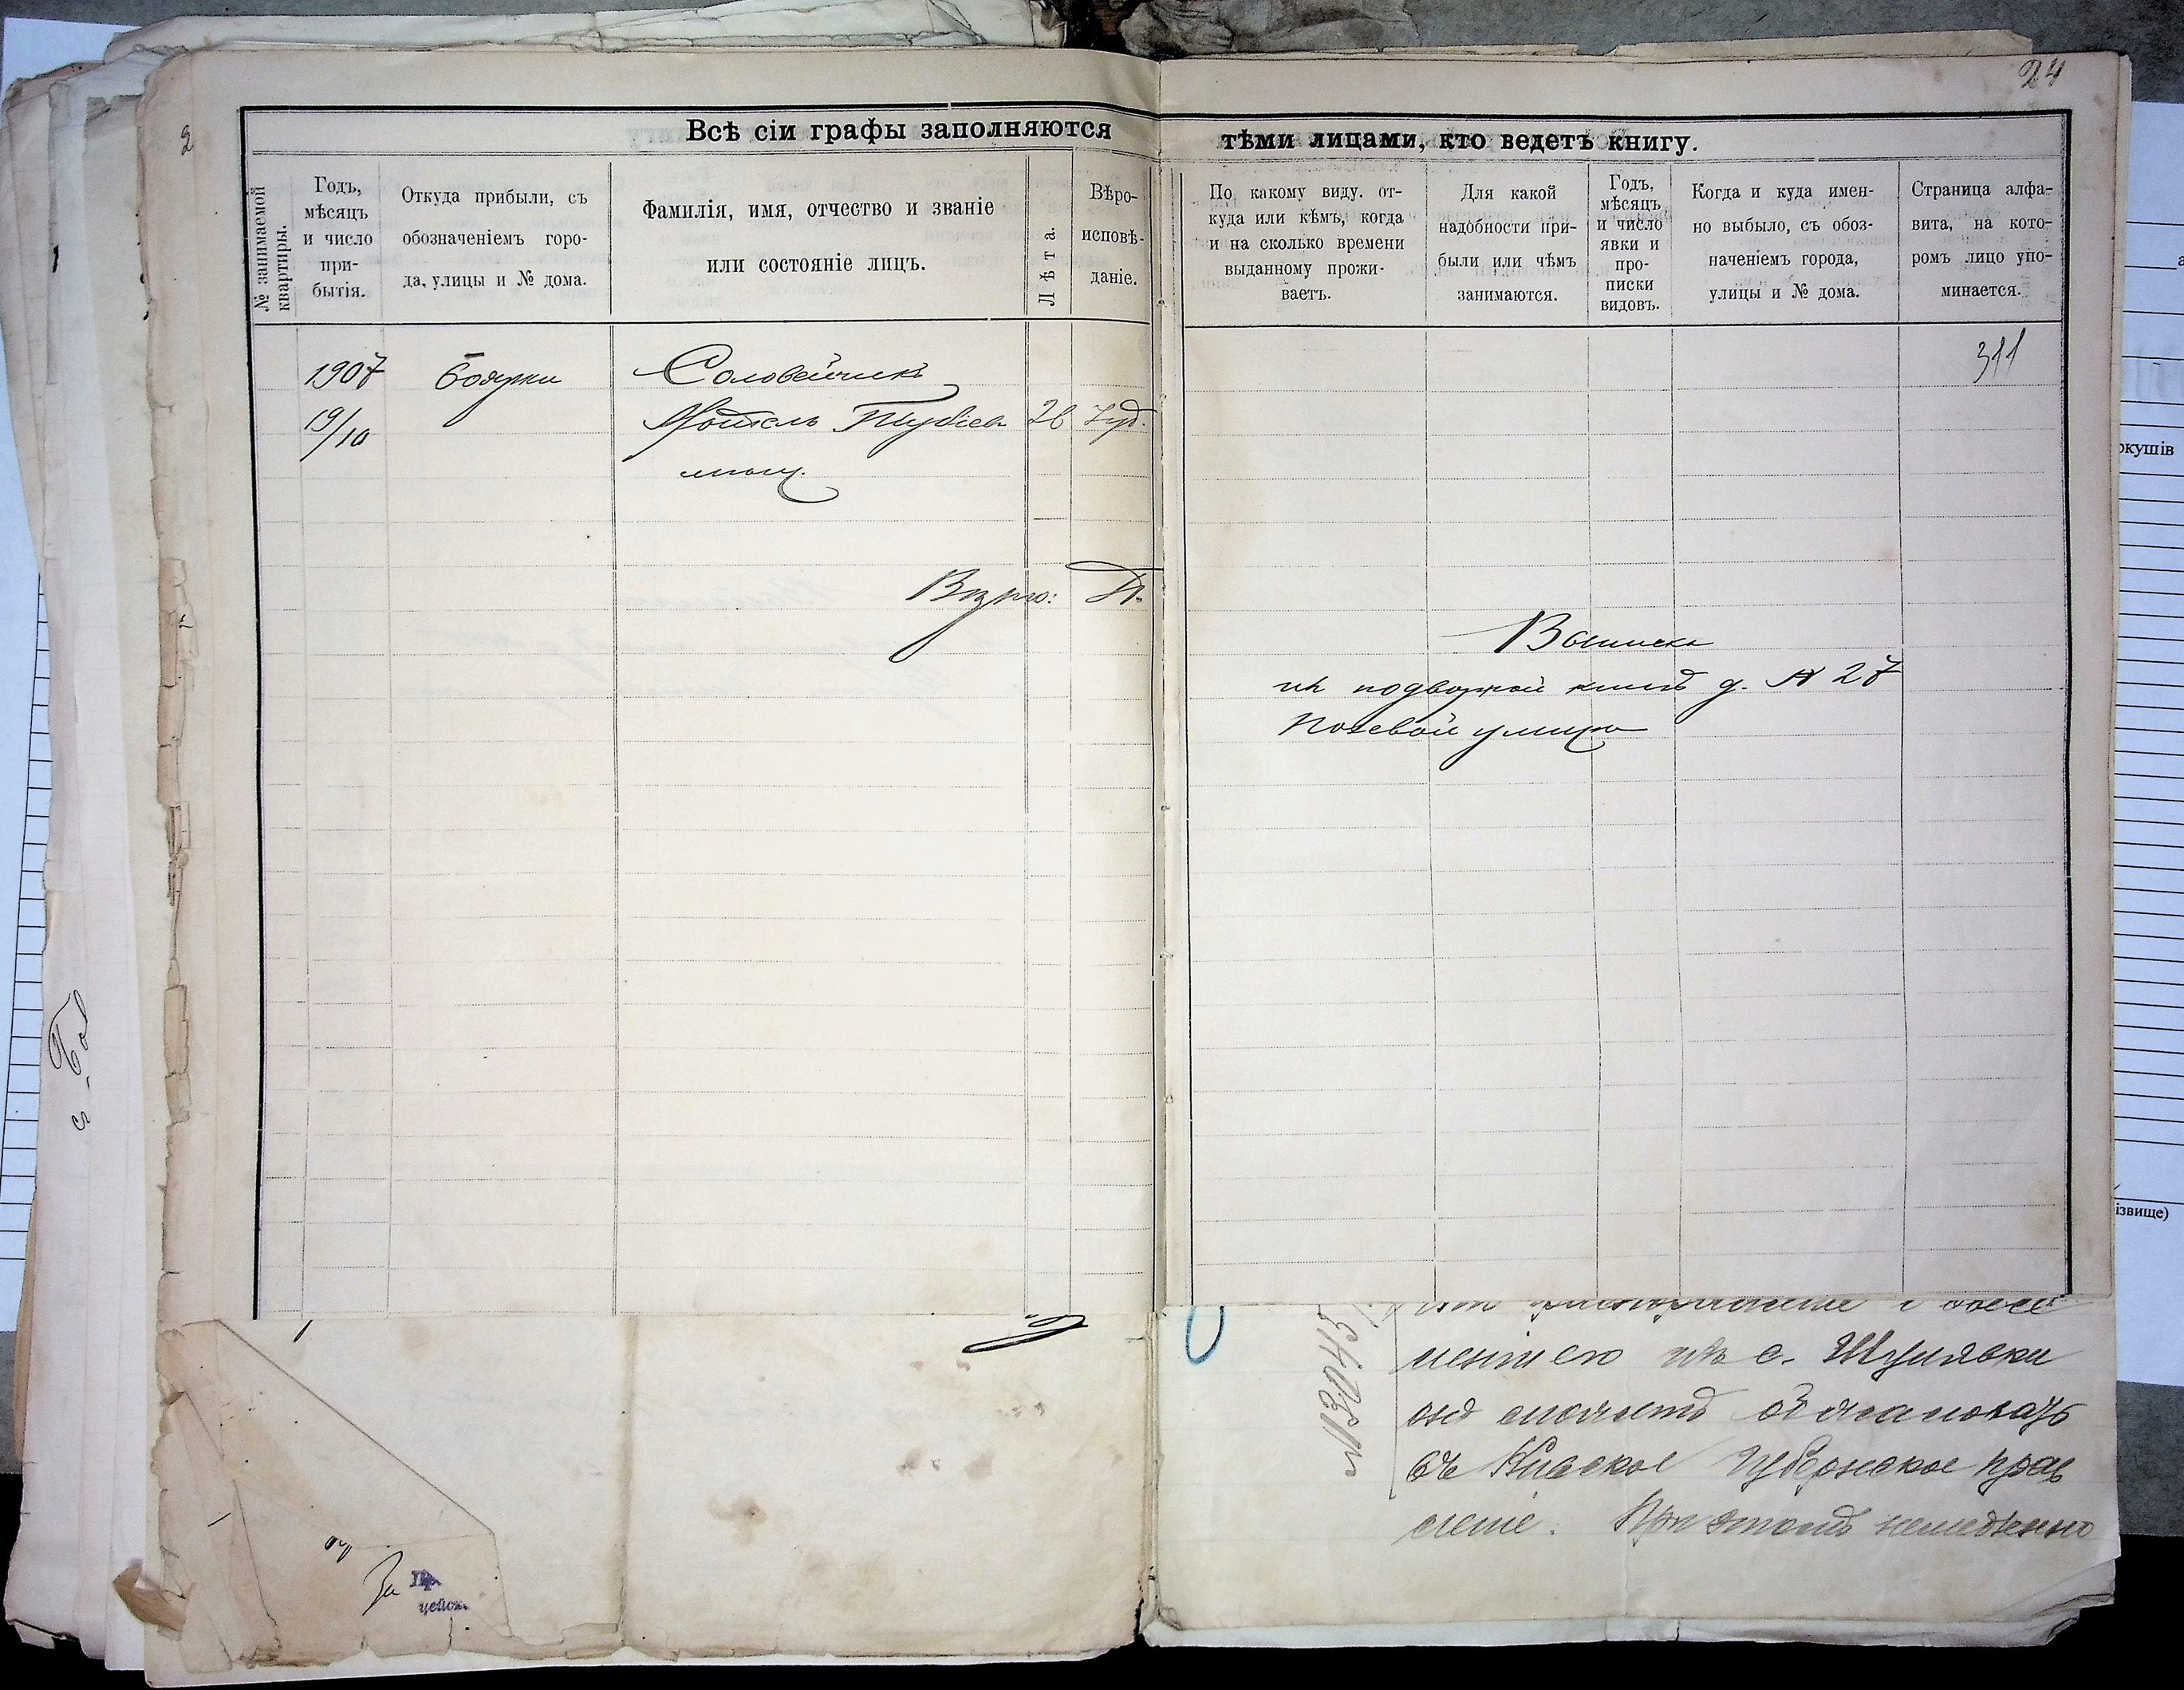 24
2
Всѣ сіи графы заполняются тѣми лицами, кто ведетъ книгу.
№ занимаемой квартиры.
Годъ, мѣсяцъ и число при-бытія.
Откуда прибыли, съ
обозначеніемъ горо-
да, улицы и № дома.
Фамилія, имя, отчество и званіе
или состояніе лицъ.
Лѣта.
Вѣро-
исповѣ-
даніе.
По какому виду. от-
куда или кѣмъ, когда
и на сколько времени
выданному прожи-
ваетъ.
Для какой
надобности при-
были или чѣмъ
занимаются.
Годъ,
мѣсяцъ
и число
явки и
про-
писки
видовъ.
Когда и куда имен-
но выбыло, съ обоз-
наченіемъ города,
улицы и № дома.
Страница алфа-
вита, на кото-
ромъ лицо упо-
минается.
1907 Боярки Соловейчикъ 311
19/10 Мотель 26 Іуд.
мѣщ.
Выписка
изъ подворной книги д. № 27
Полевой улицы
№ 13045
его изъ с. Шулявки
онъ можетъ обжаловать
въ Кіевское Губернское Прав
леніе. При этомъ немедленно
За
цейск.
окушів
ізвище)